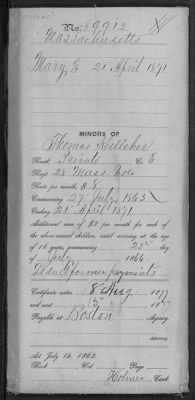 No. 89912
Massachusetts
Mary E 21 April 1871
MINORS OF
Thomas Kelleher
Rank, Private Co. E
Regt 28 Mass Vols
Rate per month, 8
Commencing 27 July 1865
Ending 21 April 1871
Additional sum of $2 per month for each of
the above-named children, until arriving at the age
of 16 years, commencing 25 day
of July 1866
payments
Certificate dated 8 Aug 1877
and sent 13 1877
Payable at Boston Agency
Attorney
Act July 14, 1862.
Book Vol. Page
Holmes Clerk